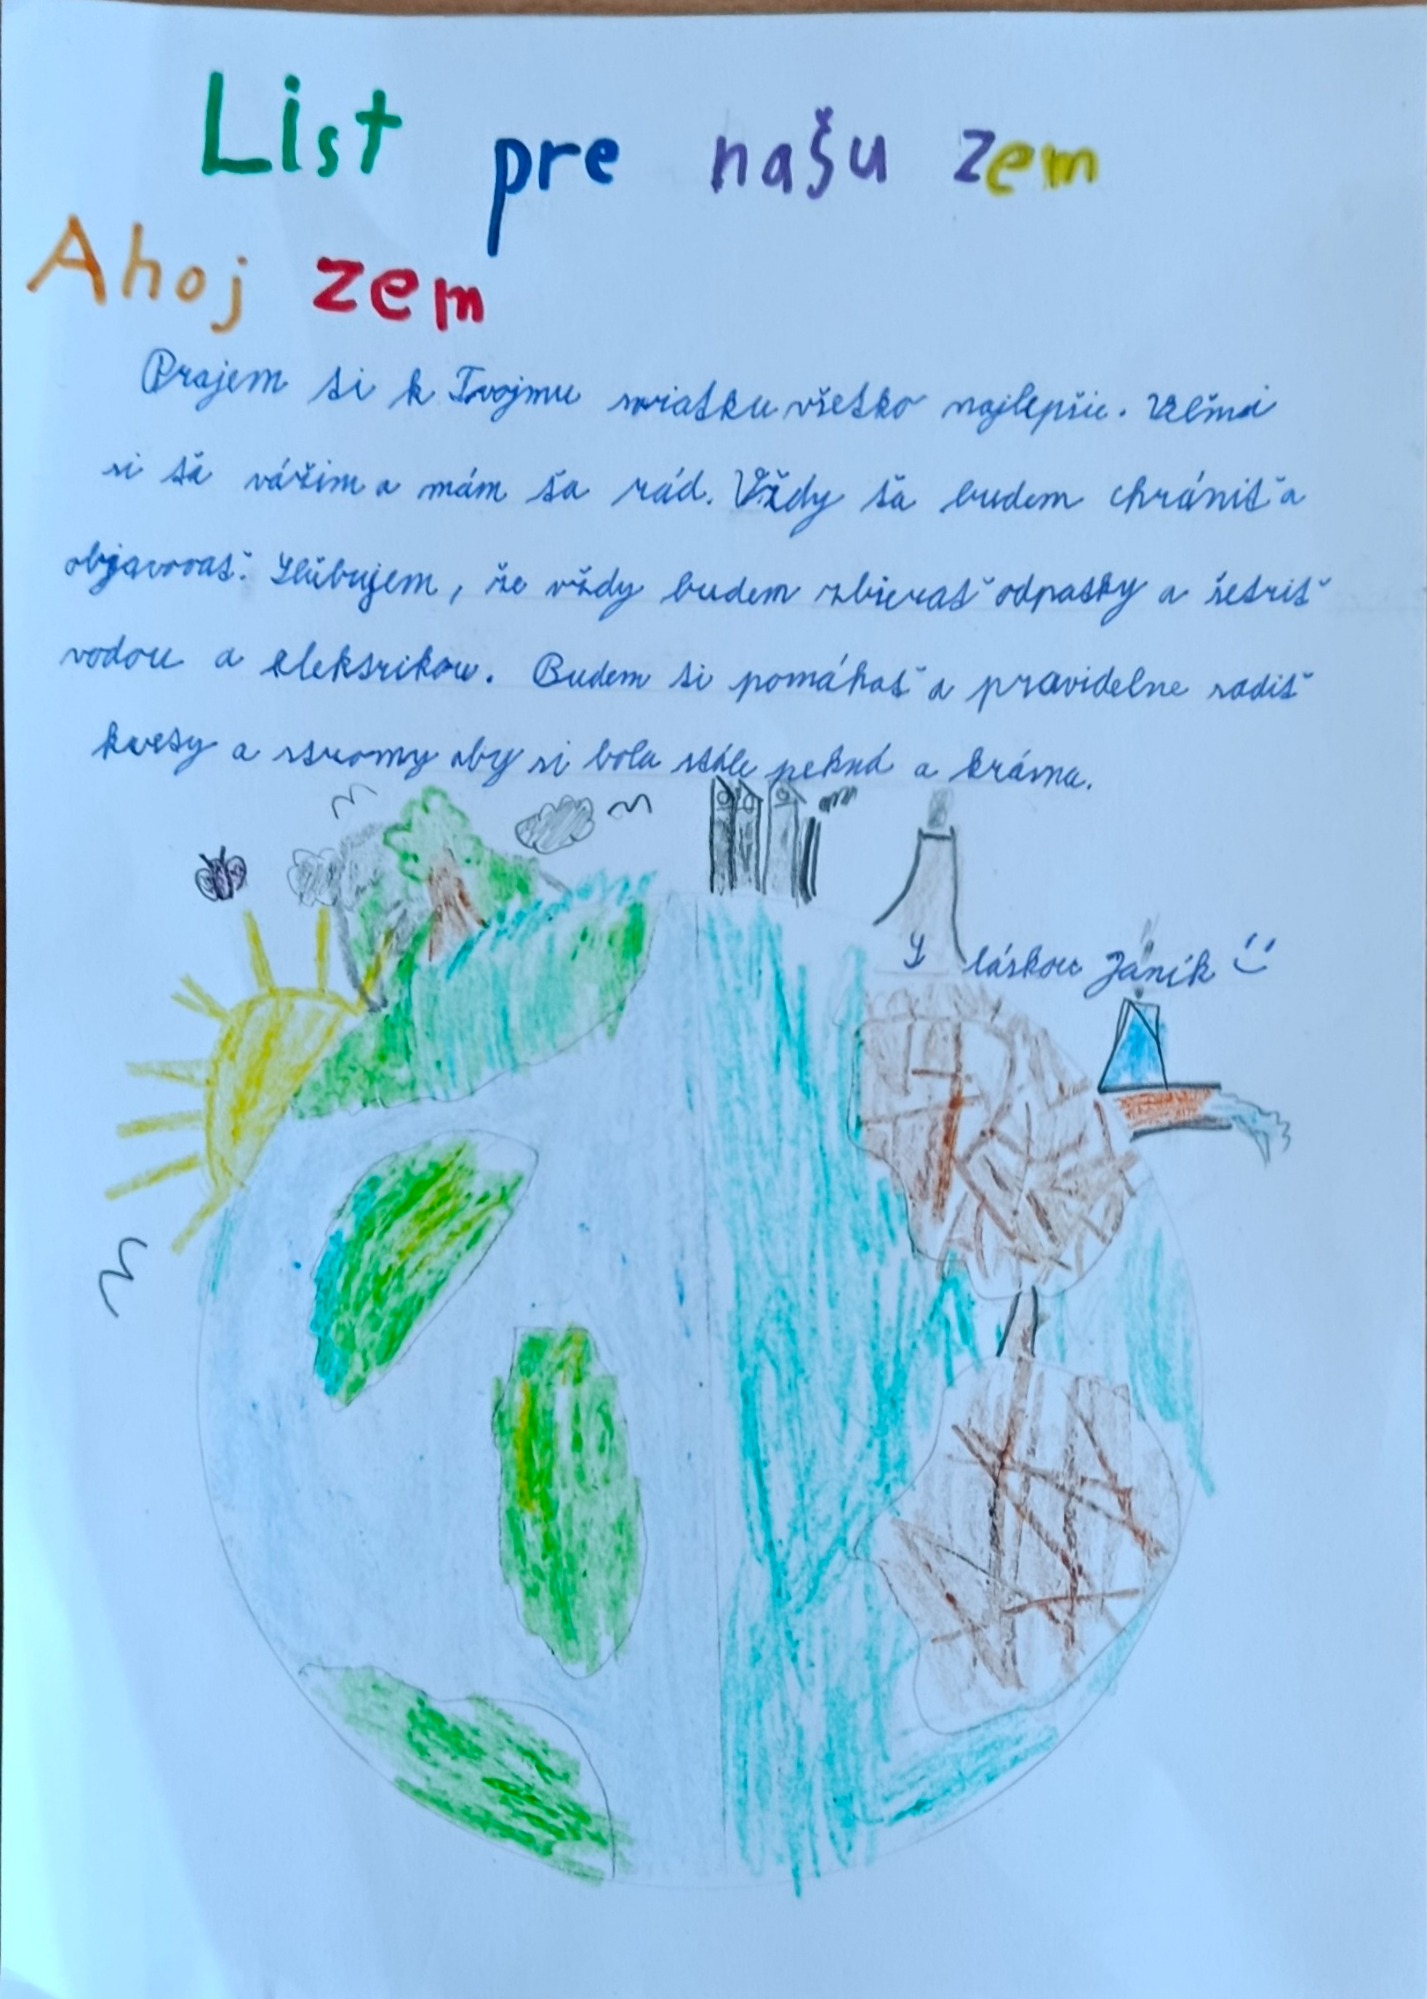 List pre našu zem
Ahoj zem
Prajem si k Tvojmu sviatku všetko najlepšie. Veľmi
si ťa vážim a mám ťa rád. Vždy ťa budem chrániť a
objavovať. Sľubujem, že vždy budem zbierať odpatky a šetriť
vodou a elektrikou. Budem si pomáhať a pravidelne sadiť
kvety a stromy aby si bola stále pekná a krásna.
S láskou Janík :)